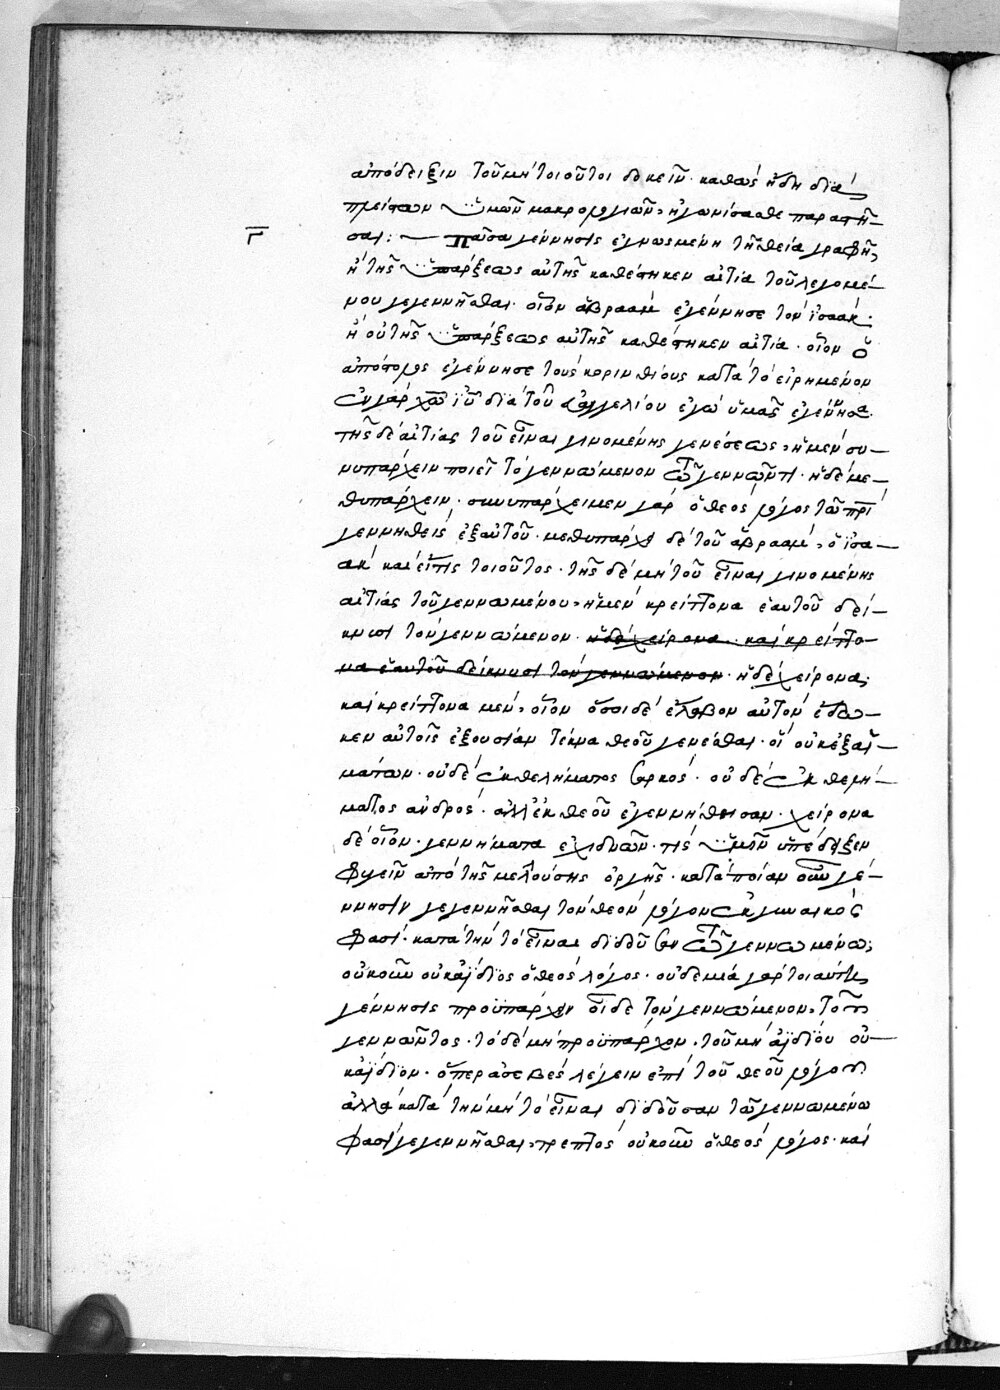 ἀπόδειξιν τοῦ μὴ τοιοῦτοι δοκεῖν· καθὼς ἤδη διὰ
πλείστων ὑμῶν μακρολογιῶν, ἠγωνίσασθε παραστῆ-
γ σαι: — Πᾶσα γέννησις ἐγνωσμένη τῇ θεία γραφῇ,
ἢ τῆς ὑπάρξεως αὐτῆς καθέστηκεν αἰτία τοῦ λεγομέ-
νου γεγεννῆσθαι· οἷον ἀβραὰμ ἐγέννησε τὸν ἰσαάκ·
ἢ οὐ τῆς ὑπάρξεως αὐτῆς καθέστηκεν αἰτία· οἷον ὁ
ἀπόστολος ἐγέννησε τοὺς κορινθίους κατὰ τὸ εἰρημένον
ἐν γὰρ χω ιυ διὰ τοῦ εὐαγγελίου ἐγὼ ὑμᾶς ἐγέννησα·
τῆς δὲ αἰτίας τοῦ εἶναι γινομένης γενέσεως, ἡ μὲν συ-
νυπάρχειν ποιεῖ τὸ γεννώμενον τῶ γεννῶντι· ἡ δὲ με-
θυπάρχειν· συνυπάρχει μὲν γὰρ ὁ θεὸς λόγος τῶ πρὶ
γεννηθεὶς ἐξ αὐτοῦ· μεθυπάρχει δὲ τοῦ ἀβραὰμ, ὁ ἰσα-
ὰκ καὶ εἴ τις τοιοῦτος· τῆς δὲ μὴ τοῦ εἶναι γινομένης
αἰτίας τοῦ γεννωμένου, ἡ μὲν κρείττονα ἑαυτοῦ δεί-
κνυσι τὸν γεννώμενον· ἡ δὲ χείρονα· καὶ κρείττο-
να ἑαυτοῦ δείκνυσι τὸν γεννώμενον· ἡ δὲ χείρονα,
καὶ κρείττονα μὲν, οἷον ὅσοι δὲ ἔλαβον αὐτὸν ἔδω-
κεν αὐτοῖς ἐξουσίαν τέκνα θεοῦ γενέσθαι· οἳ οὐκ ἐξ αἱ-
μάτων· οὐδὲ ἐκ θελήματος σαρκὸς· οὐδὲ ἐκ θελή-
ματος ἀνδρὸς· ἀλλ' ἐκ θεοῦ ἐγεννήθησαν· χείρονα
δὲ οἷον· γεννήματα ἐχιδνῶν· τίς ὑμῖν ὑπέδειξεν
φυγεῖν ἀπὸ τῆς μελλούσης ὀργῆς· κατὰ ποίαν οὖν γέ-
ννησιν γεγεννῆσθαι τὸν θεὸν λόγον ἐκ γυναικὸς
φασὶ· κατὰ τὴν τὸ εἶναι διδοῦσαν τῶ γεννωμένω,
οὐκοῦν οὐκ ἀΐδιος ὁ θεὸς λόγος· οὐδεμία γὰρ τοιαύτη
γέννησις προϋπάρχειν οἶδε τὸν γεννώμενον, τοῦ
γεννῶντος· τὸ δὲ μὴ προϋπάρχον, τοῦ μὴ ἀϊδίου οὐ-
κ ἀΐδιον· ὅπερ ἀσεβὲς λέγειν ἐπὶ τοῦ θεοῦ λόγου
ἀλλὰ κατὰ τὴν μὴ τὸ εἶναι διδοῦσαν τῶ γεννωμένω
φασὶ γεγεννῆσθαι, τρεπτὸς οὐκοῦν ὁ θεὸς λόγος· καὶ